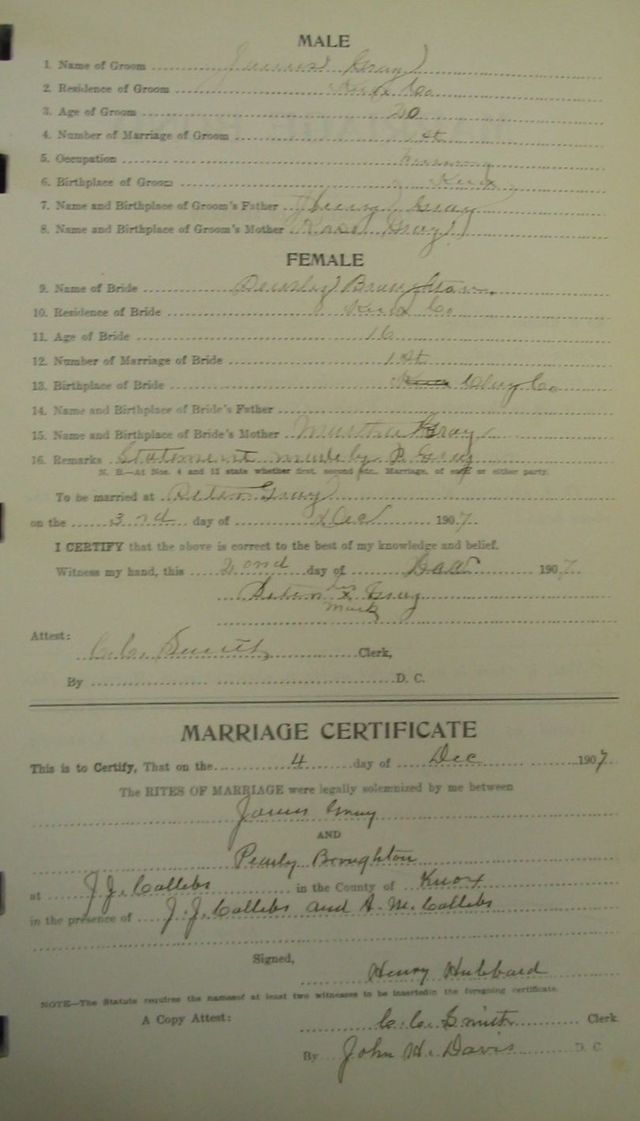 MALE
1. Name of Groom Gray
2. Residence of Groom Knox Co
3. Age of Groom 20
4. Number of Marriage of Groom 1st
5. Occupation
6. Birthplace of Groom Knox
7. Name and Birthplace of Groom's Father Henry Gray
8. Name and Birthplace of Groom's Mother Gray
FEMALE
9. Name of Bride
10. Residence of Bride Knox Co
11. Age of Bride 16
12. Number of Marriage of Bride 1st
13. Birthplace of Bride Clay Co
14. Name and Birthplace of Bride's Father
15. Name and Birthplace of Bride's Mother Gray
16. Remarks Statement made by P. Gray
N. B.—At Nos. 4 and 12 state whether first, second etc., Marriage, of each or either party.
To be married at Gray
on the 3rd day of Dec 1907
I CERTIFY that the above is correct to the best of my knowledge and belief.
Witness my hand, this 2ond day of 1907
his
x Gray
mark
Attest:
C. C. Smith Clerk,
By D. C.
MARRIAGE CERTIFICATE
This is to Certify, That on the 4 day of Dec 1907
The RITES OF MARRIAGE were legally solemnized by me between
Gray
AND
Pearly Broughton
at J. J. Callebs in the County of Knox
in the presence of J. J. Callebs and A. M. Callebs
Signed,
Henry Hubbard
NOTE—The Statute requires the names of at least two witnesses to be inserted in the foregoing certificate.
A Copy Attest: C. C. Smith Clerk
By John H. Davis D. C.